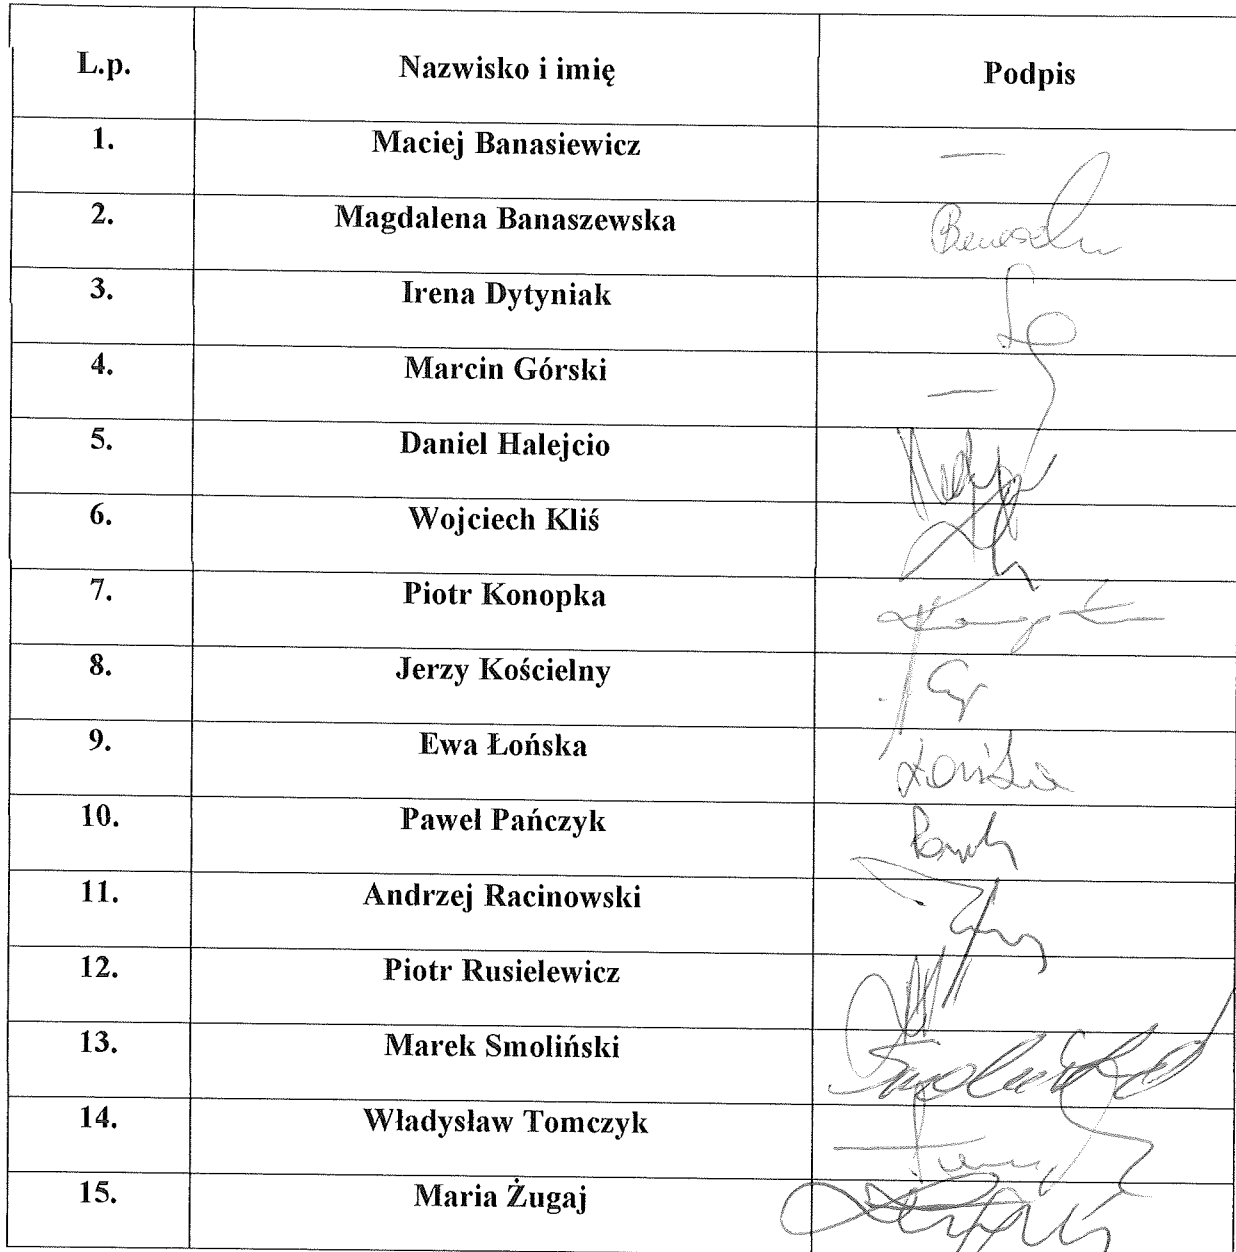 L.p. Nazwisko i imię Podpis
1. Maciej Banasiewicz —
2. Magdalena Banaszewska
3. Irena Dytyniak
4. Marcin Górski —
5. Daniel Halejcio
6. Wojciech Kliś
7. Piotr Konopka
8. Jerzy Kościelny
9. Ewa Łońska Łońska
10. Paweł Pańczyk
11. Andrzej Racinowski
12. Piotr Rusielewicz
13. Marek Smoliński
14. Władysław Tomczyk
15. Maria Żugaj